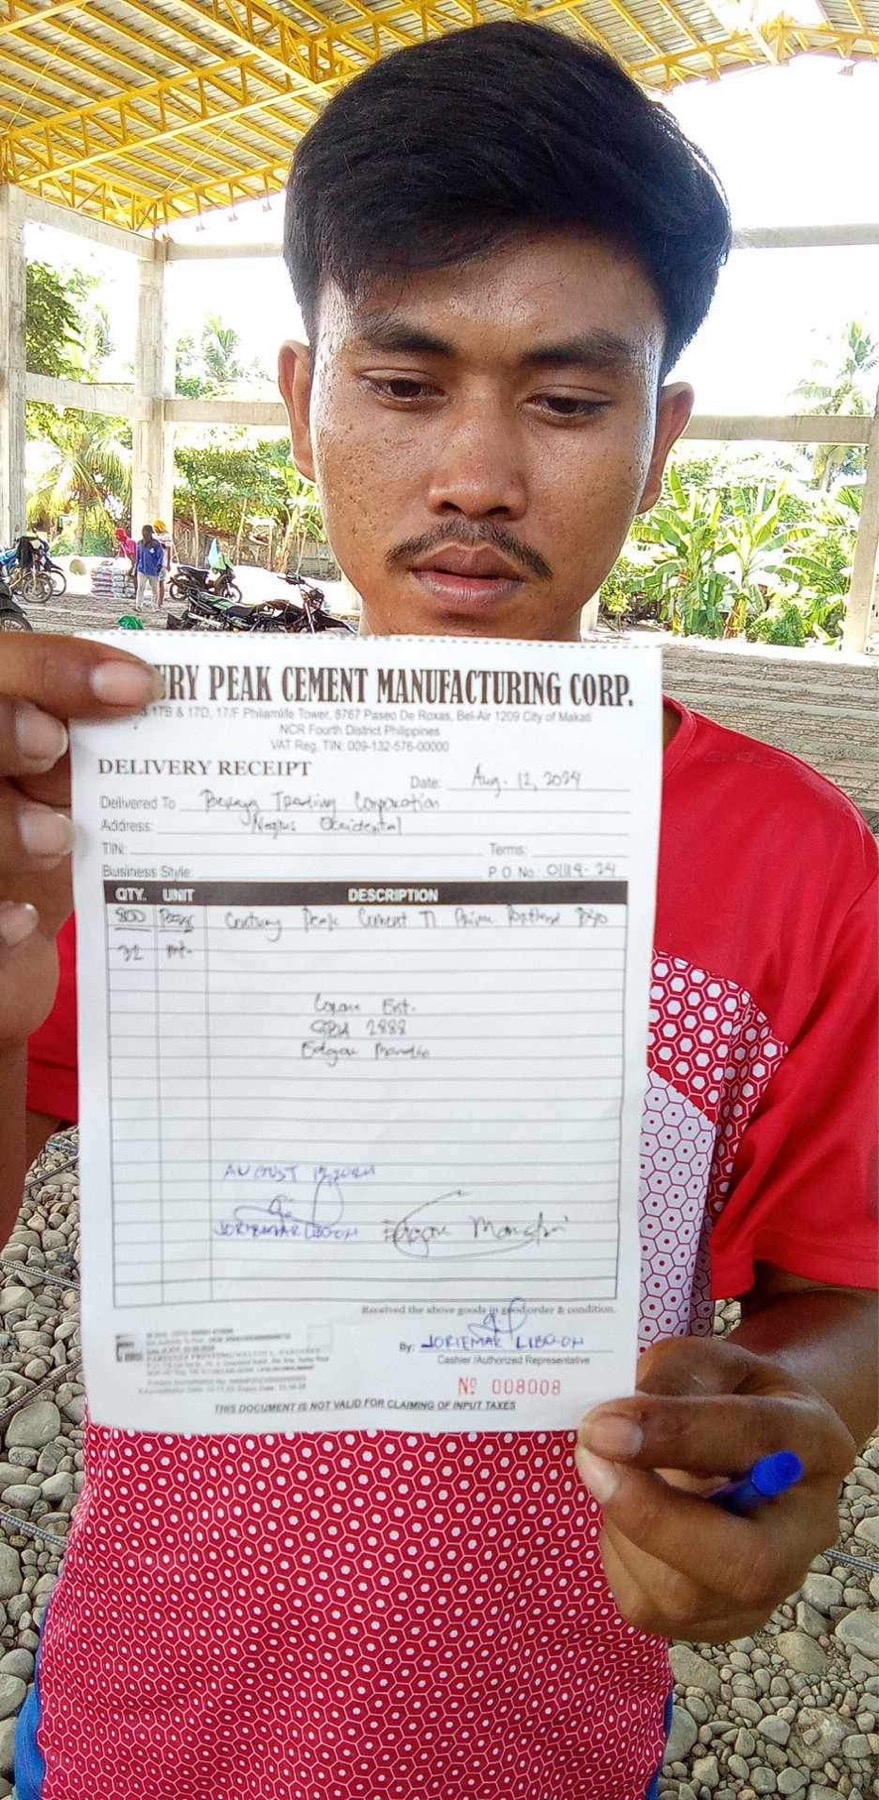 URY PEAK CEMENT MANUFACTURING CORP.
17B & 17D, 17/F Philamlife Tower, 8767 Paseo De Roxas, Bel-Air 1209 City of Makati
NCR Fourth District Philippines
VAT Reg. TIN: 009-132-576-00000
DELIVERY RECEIPT
Date: Aug. 12, 2024
Delivered To Trading Corporation
Address: Negros Occidental
TIN: Terms:
Business Style: P.O No.
QTY. UNIT DESCRIPTION
800 Century Peak Cement Portland
32 mt.
Ent.
2888
Edgar
AUGUST 12, 2024
JORIEMAR LIBOON Edgar
Received the above goods in good order & condition.
By: JORIEMAR LIBOON
Cashier /Authorized Representative
Nº 008008
THIS DOCUMENT IS NOT VALID FOR CLAIMING OF INPUT TAXES